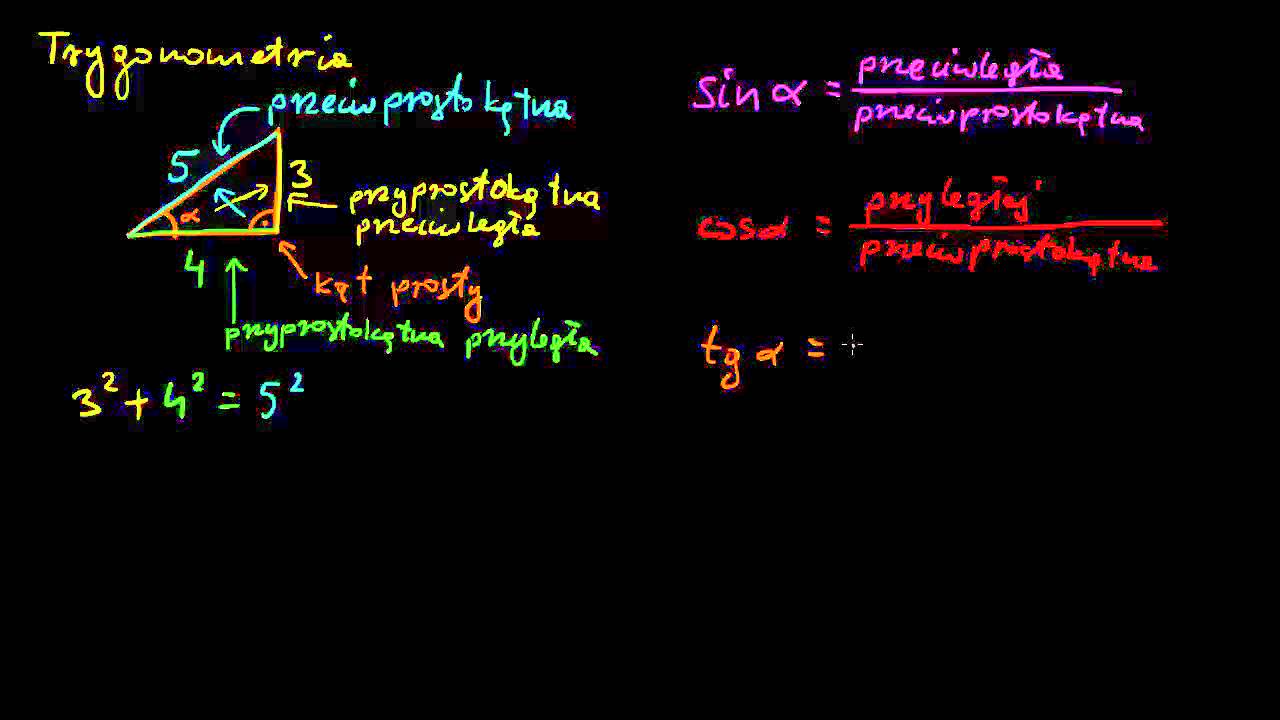 Trygonometria
przeciwprostokątna
5
3
α
przyprostokątna
przeciwległa
4
kąt prosty
przyprostokątna przyległa
3² + 4² = 5²
sin α = przeciwległa
przeciwprostokątna
cos α = przyległej
przeciwprostokątna
tg α =